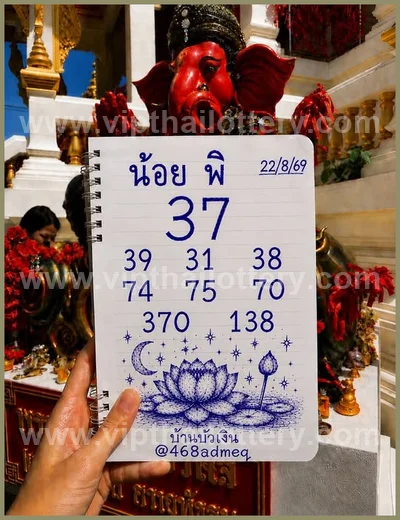 www.vipthailottery.com
น้อย พิ
22/8/69
37
39 31 38
www.vipthailottery.com
74 75 70
370 138
www.vipthailottery.com
บ้านบัวเงิน
@468admeq